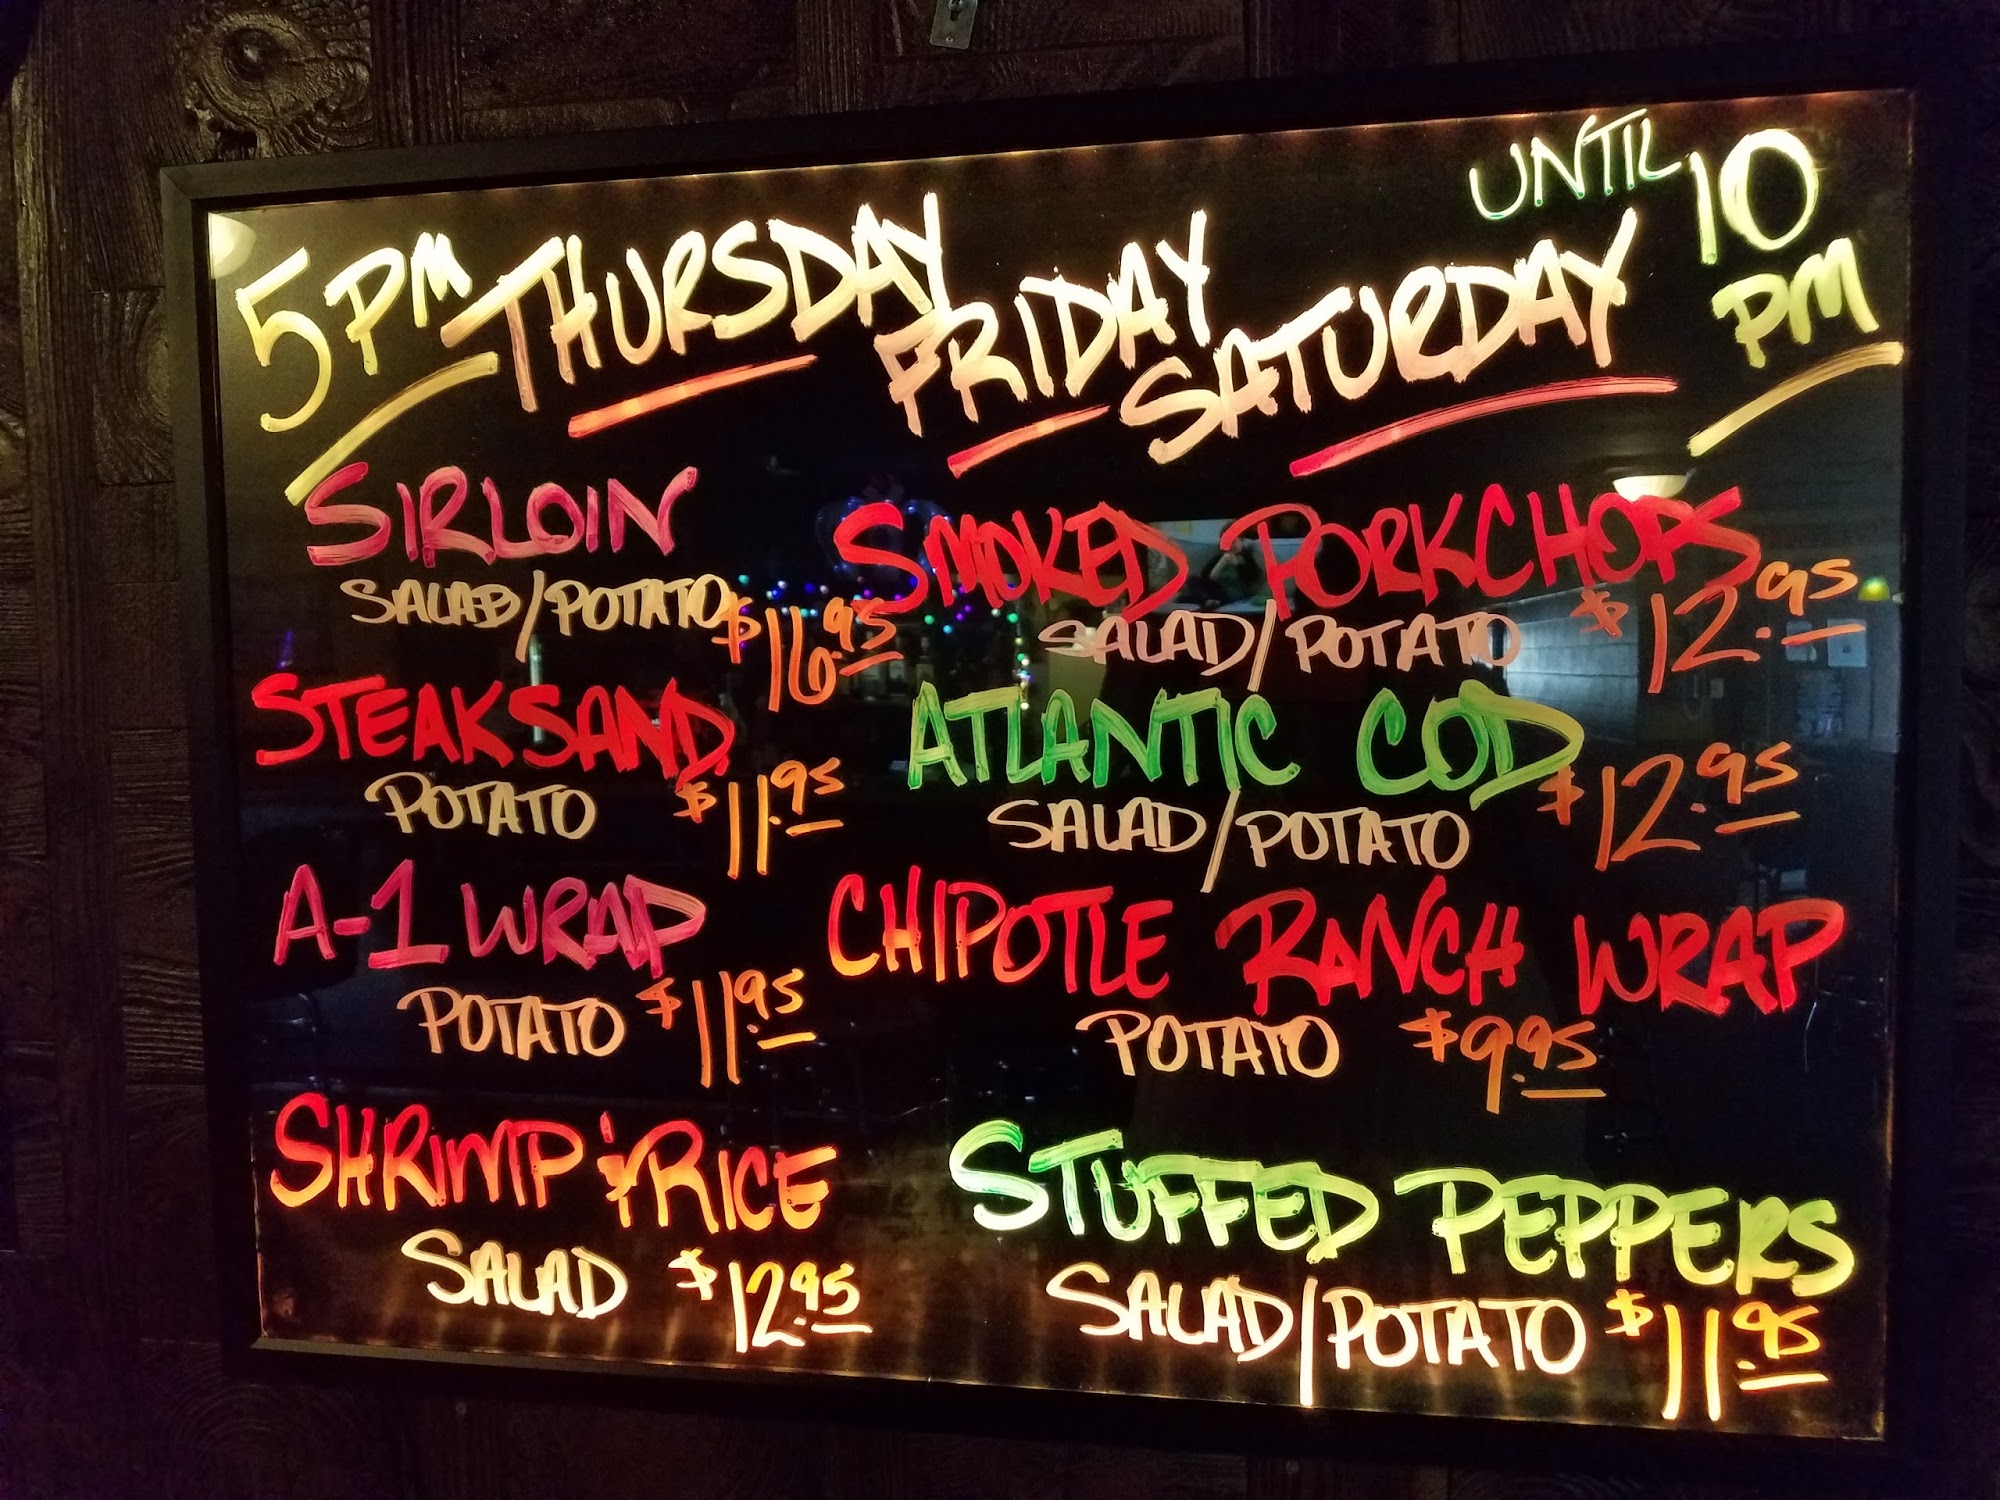 5PM THURSDAY FRIDAY SATURDAY UNTIL 10 PM
SIRLOIN
SALAD/POTATO $16.95
STEAK SAND.
POTATO $11.95
A-1 WRAP
POTATO $11.95
SHRIMP & RICE
SALAD $12.95
SMOKED PORKCHOPS
SALAD/POTATO $12.95
ATLANTIC COD
SALAD/POTATO $12.95
CHIPOTLE RANCH WRAP
POTATO $9.95
STUFFED PEPPERS
SALAD/POTATO $11.95